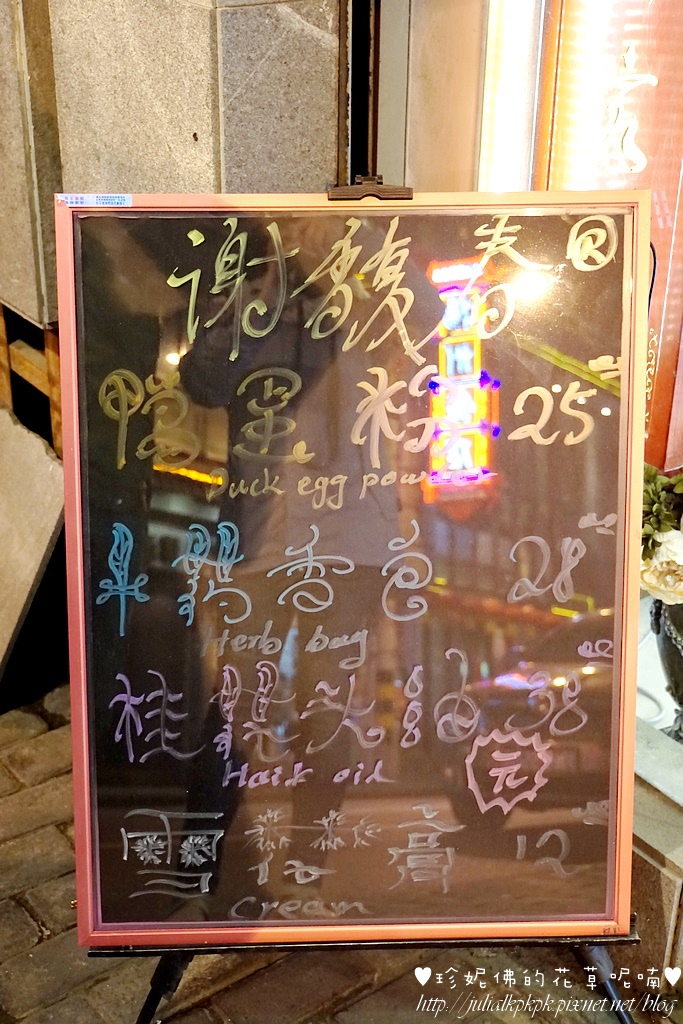 谢馥春®
鸭蛋粉 25
Duck egg powder
香包 28
Herb bag
桂 头油 38
Hair oil
元
雪花膏 12
Cream
♥珍妮佛的花草呢喃♥
http://julialkpkpk.pixnet.net/blog